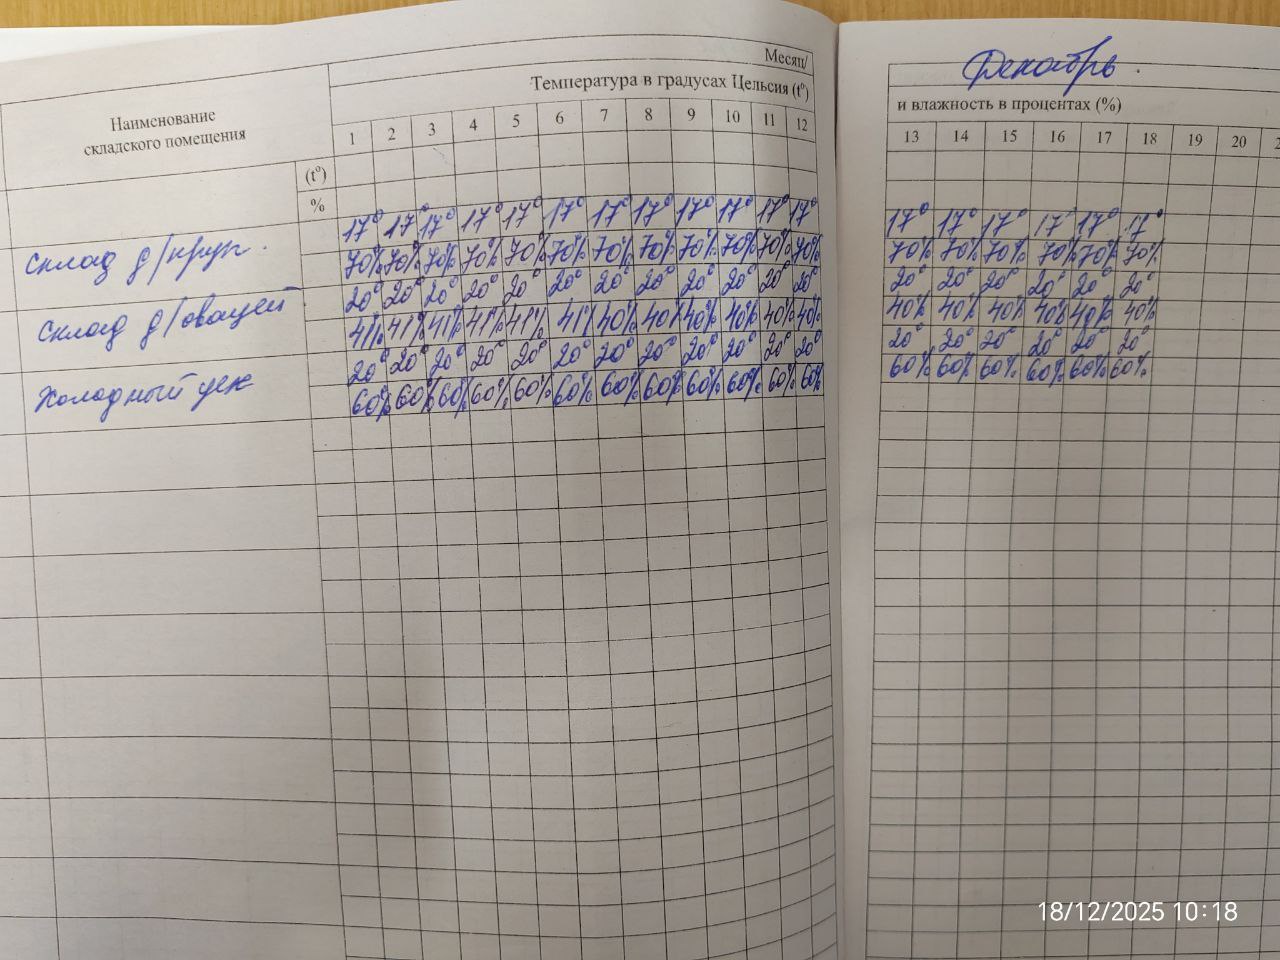 Месяц/
Декабрь.
Наименование складского помещения
Температура в градусах Цельсия (t°)
и влажность в процентах (%)
1 2 3 4 5 6 7 8 9 10 11 12 13 14 15 16 17 18 19 20 2
(t°)
%
Склад д/круп.
17° 17° 17° 17° 17° 17° 17° 17° 17° 17° 17° 17° 17° 17° 17° 17° 17° 17°
70% 70% 70% 70% 70% 70% 70% 70% 70% 70% 70% 70% 70% 70% 70% 70% 70% 70%
Склад д/овощей
20° 20° 20° 20° 20° 20° 20° 20° 20° 20° 20° 20° 20° 20° 20° 20° 20° 20°
41% 41% 41% 41% 41% 41% 40% 40% 40% 40% 40% 40% 40% 40% 40% 40% 40% 40%
Холодный цех
20° 20° 20° 20° 20° 20° 20° 20° 20° 20° 20° 20° 20° 20° 20° 20° 20° 20°
60% 60% 60% 60% 60% 60% 60% 60% 60% 60% 60% 60% 60% 60% 60% 60% 60% 60%
18/12/2025 10:18